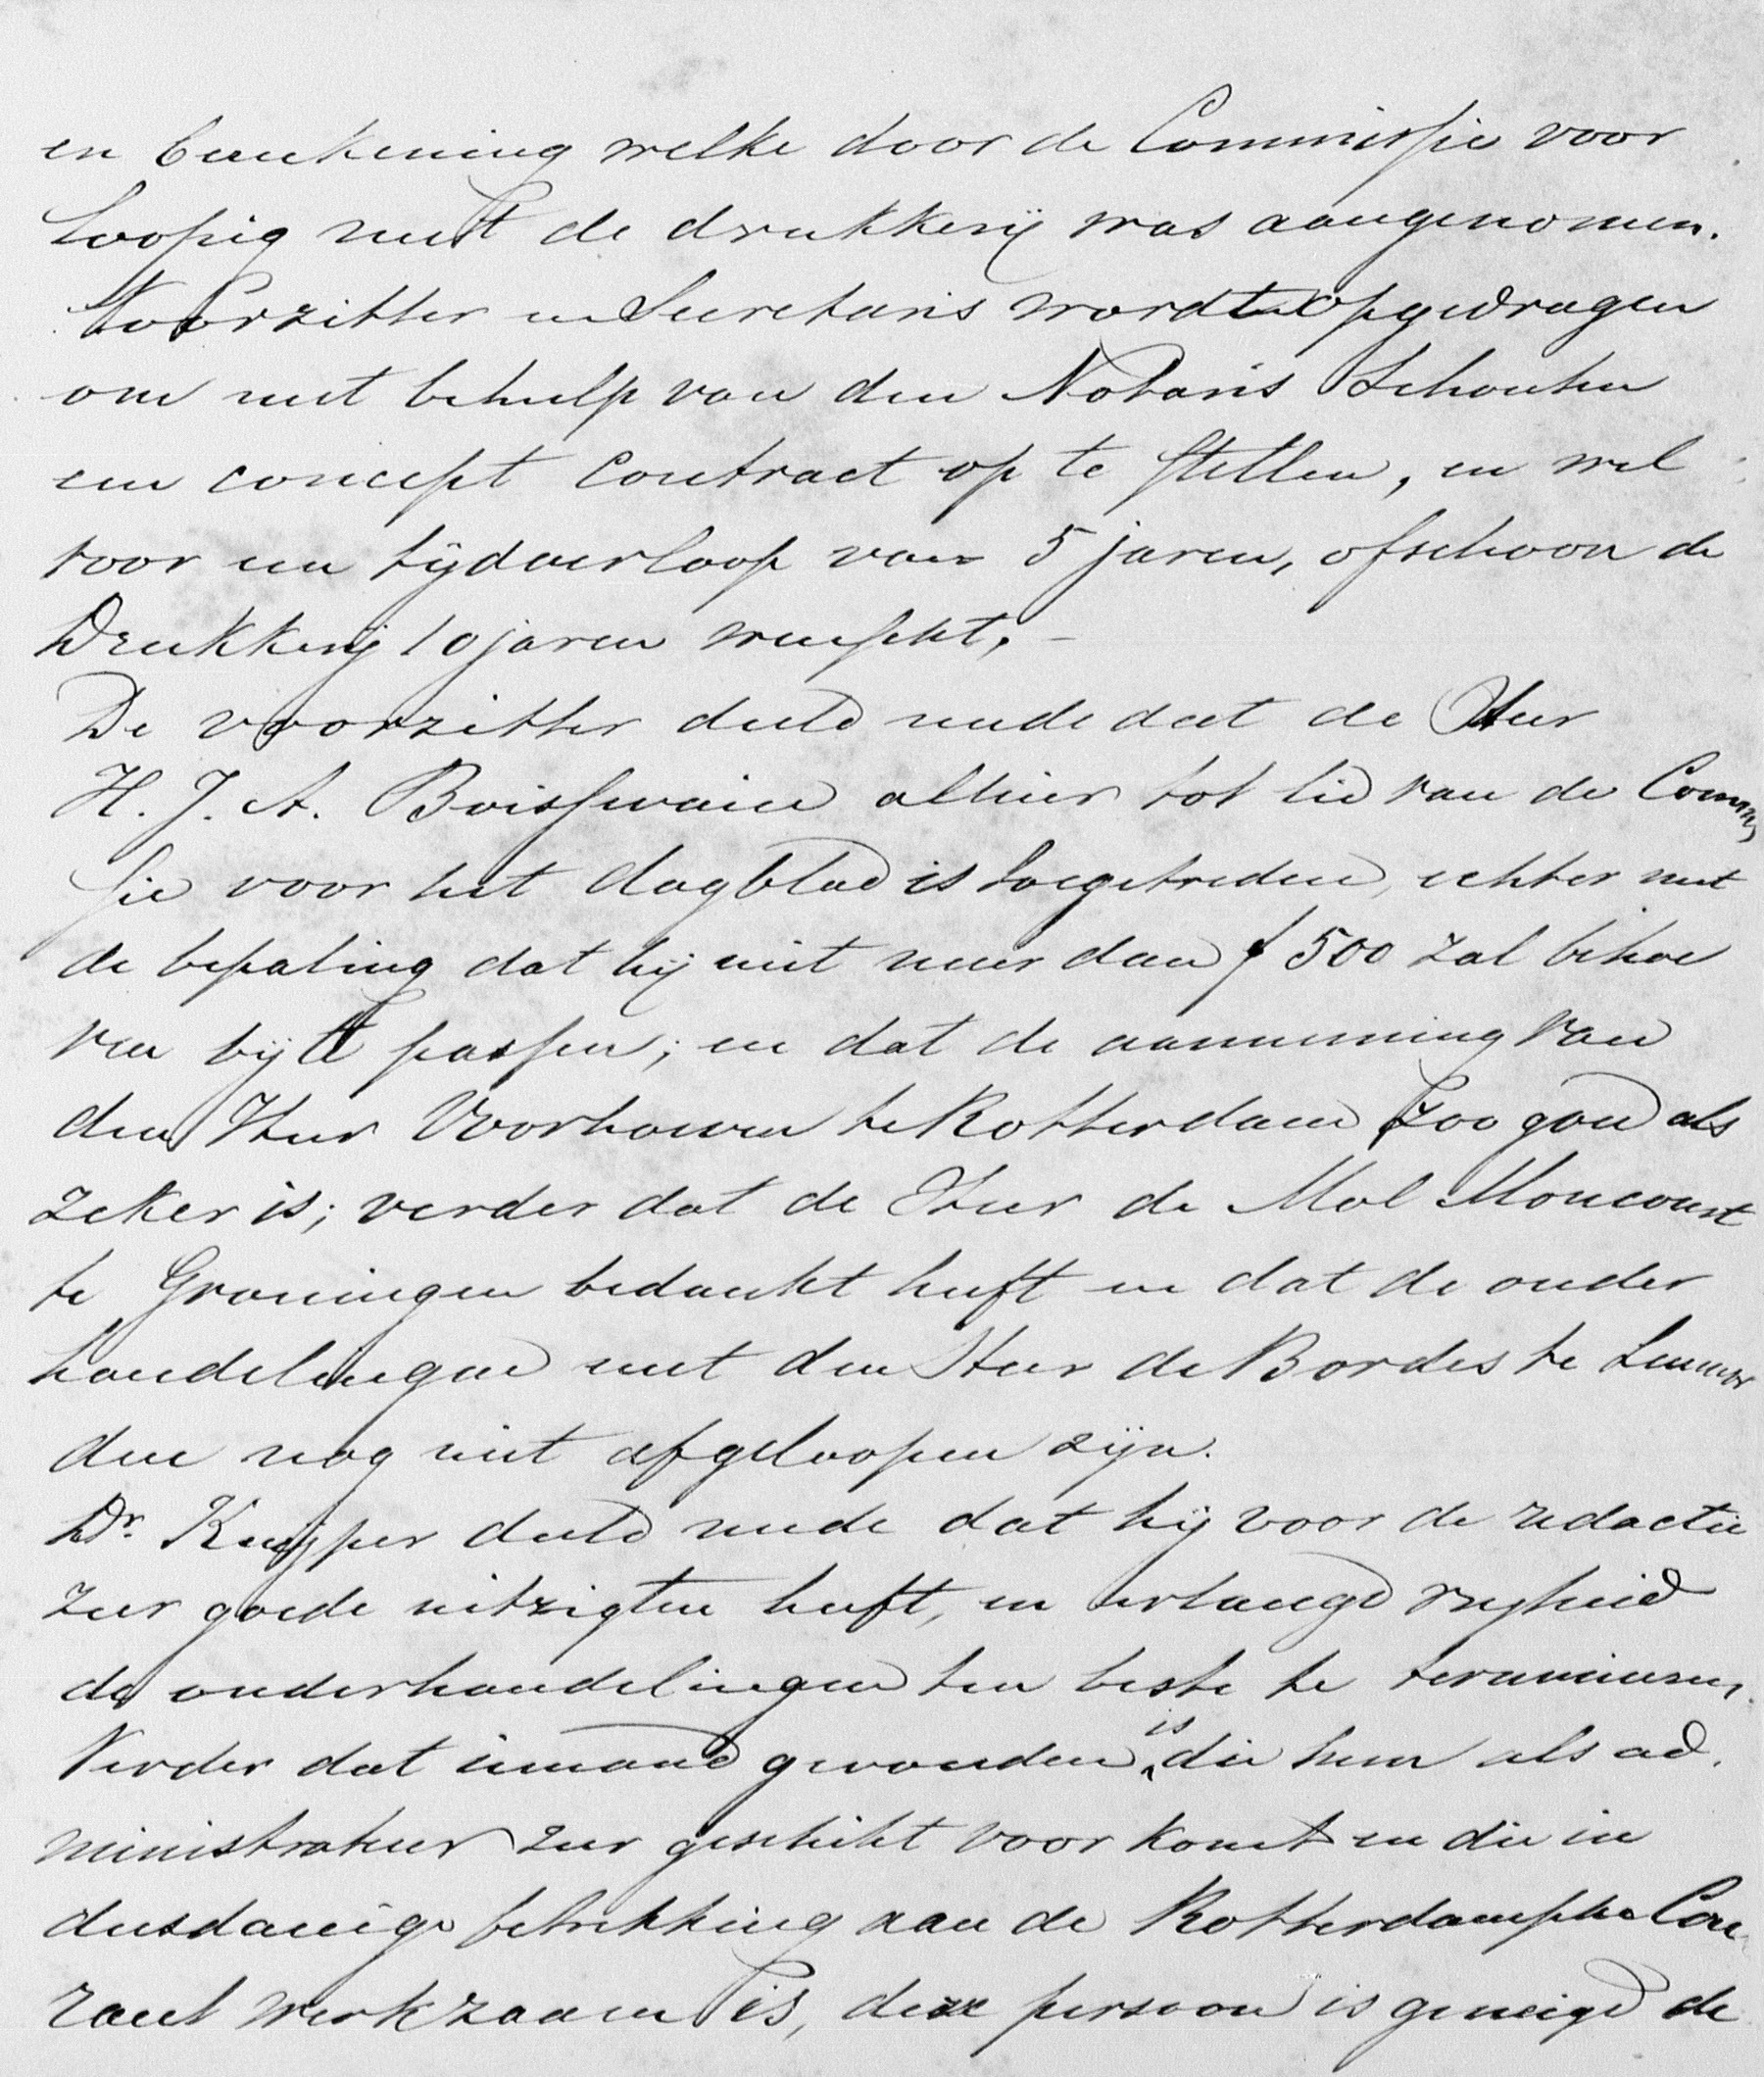 en berekening welke door de Commissie voor
loopig met de drukkerij was aangenomen.
Voorzitter en Secretaris wordt opgedragen
om met behulp van den Notaris Schouten
een concept contract op te stellen, en wel
voor een tijdverloop van 5 jaren, ofschoon de
Drukkerij 10 jaren wenscht. –
De voorzitter deeld mede dat de Heer
H. J. A. Boissevain alhier tot lid van de Commis
sie voor het dagblad is toegetreden, echter met
de bepaling dat hij niet meer dan ƒ 500 zal behoe
ven bij te passen; en dat de aanneming van
den Heer Voorhoeven te Rotterdam zoo goed als
zeker is; verder dat de Heer de Mol Moncourt
te Groningen bedankt heeft en dat de onder
handelingen met den Heer de Bordes te Leeuwar
den nog niet afgeloopen zijn.
Dr. Kuyper deeld mede dat hij voor de redactie
zeer goede uitzigten heeft, en verlangd vrijheid
de onderhandelingen ten beste te termineren,
Verder dat iemand gevonden is die hem als ad.
ministrateur zeer geschikt voor komt en die in
dusdanige betrekking aan de Rotterdamsche Cou
rant werkzaam is, deze persoon is geneigd de